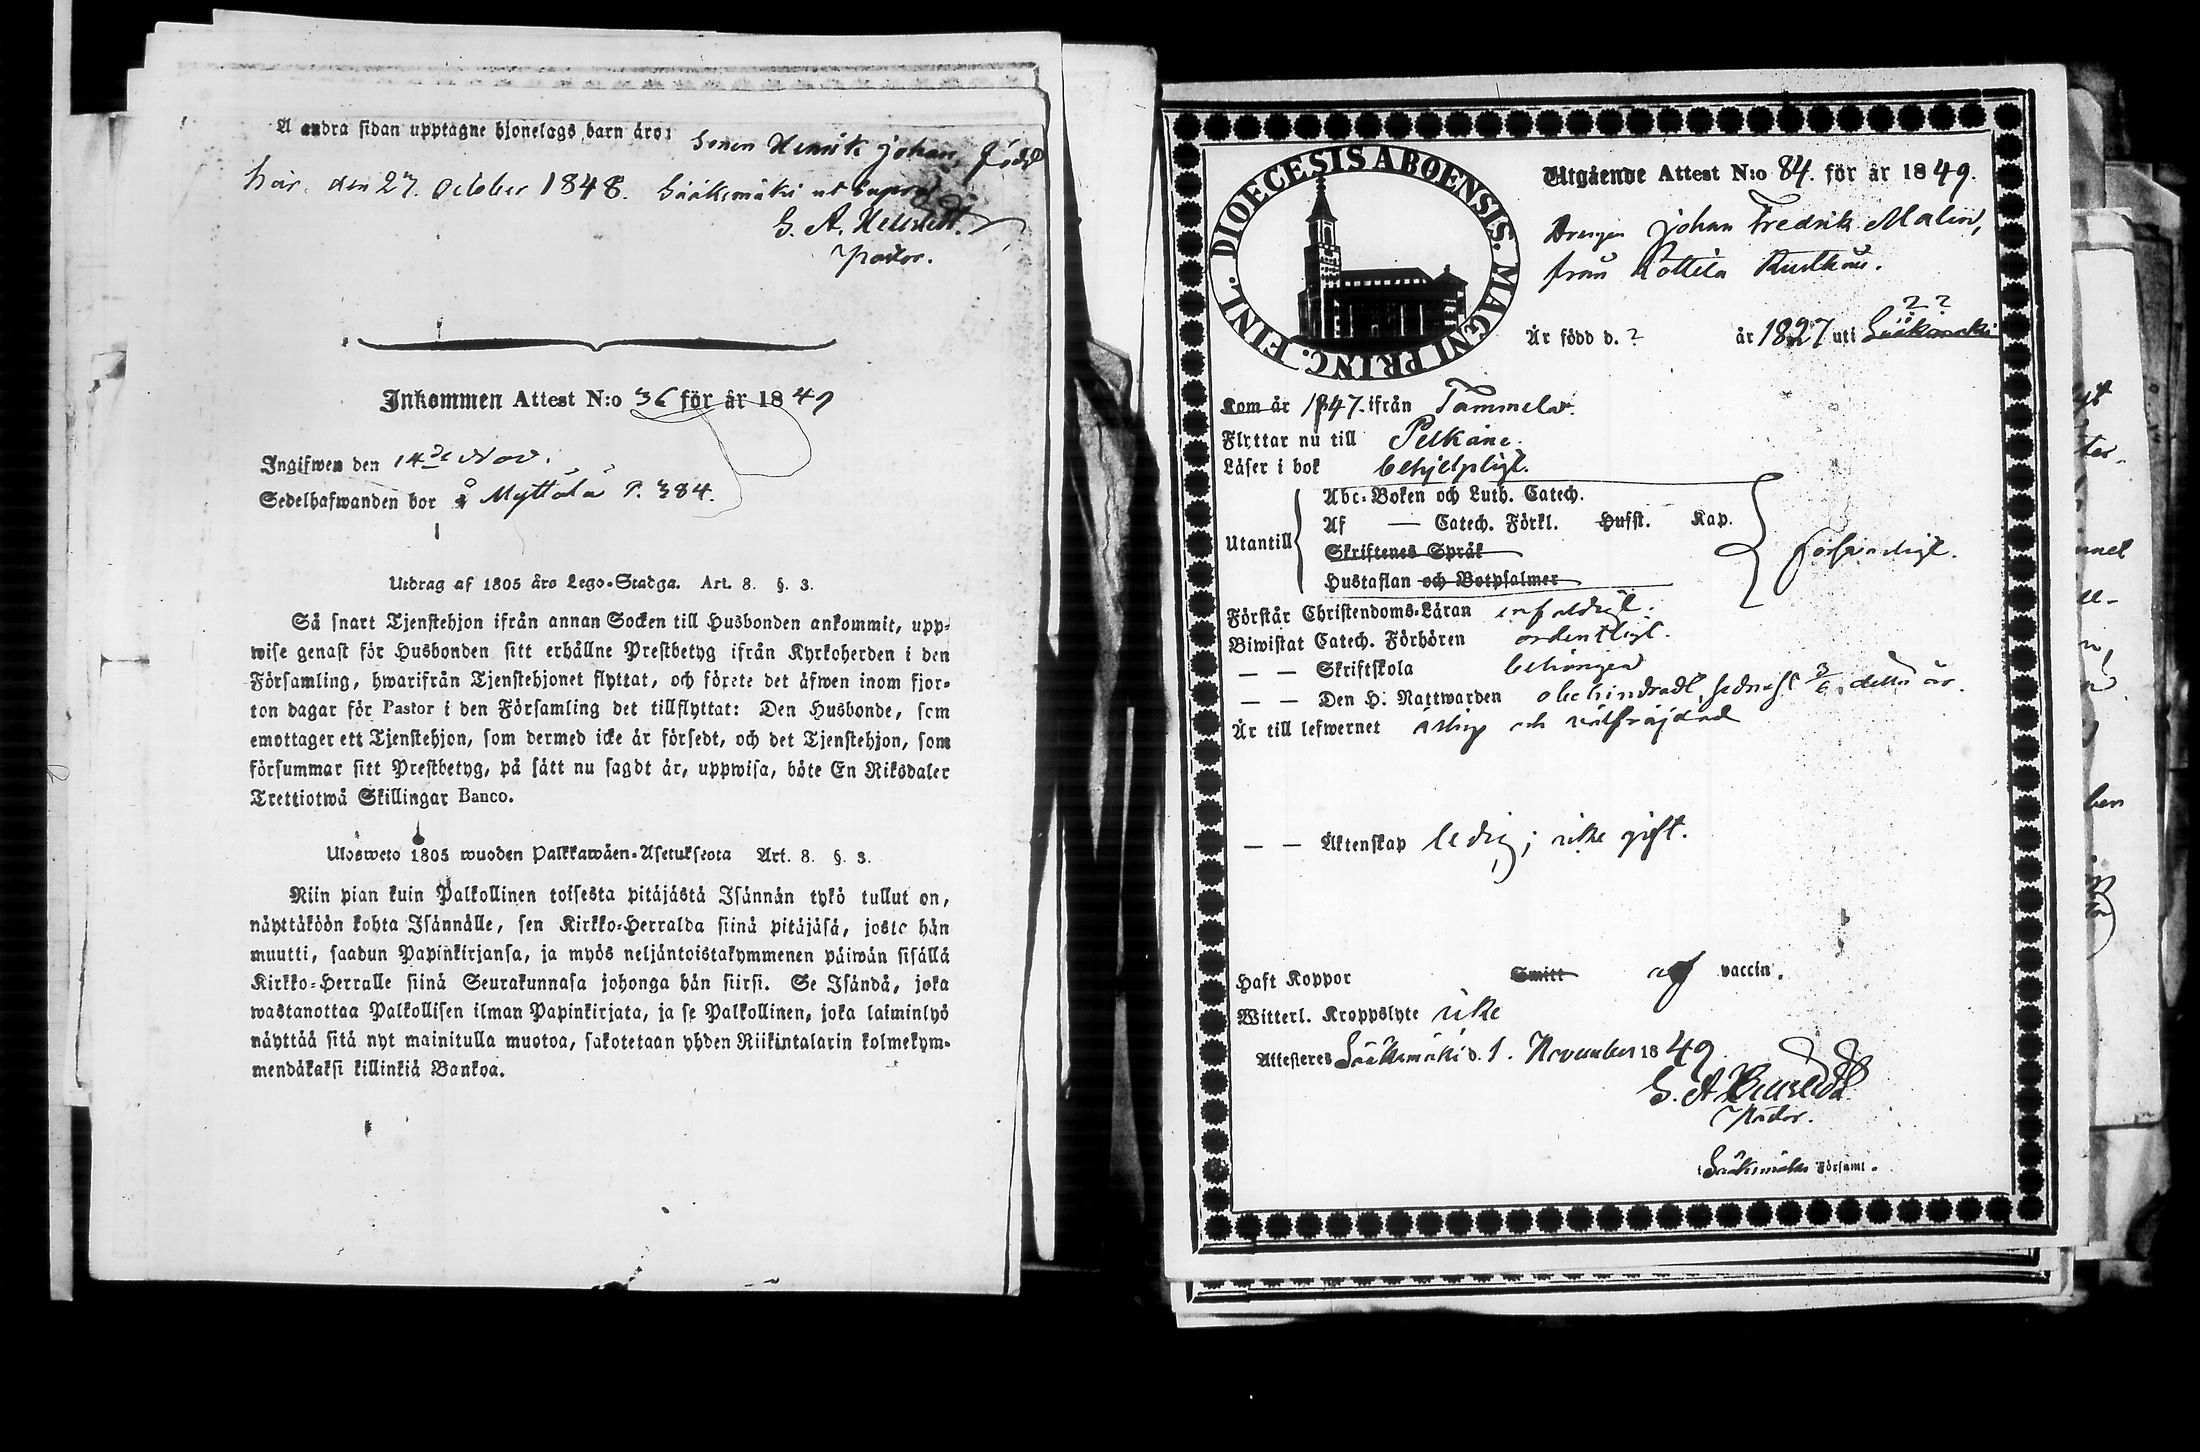 Å andra sidan upptagne hjonelags barn äro: Sonen Henrik Johan, född
här den 27. October 1848. Sääksmäki ut supra
G. A.
Pastor.
Inkommen Attest N:o 36 för år 1849
Ingifwen den 14de Nov.
Sedelhafwanden bor å Myttälä P. 384.
Utdrag af 1805 års Lego-Stadga. Art. 8. §. 3.
Så snart Tjenstehjon ifrån annan Socken till Husbonden ankommit, upp-
wise genast för Husbonden sitt erhållne Prestbetyg ifrån Kyrkoherden i den
Församling, hwarifrån Tjenstehjonet flyttat, och förete det äfwen inom fjor-
ton dagar för Pastor i den Församling det tillflyttat: Den Husbonde, som
emottager ett Tjenstehjon, som dermed icke är försedt, och det Tjenstehjon, som
försummar sitt Prestbetyg, på sätt nu sagdt är, uppwisa, böte En Riksdaler
Trettiotwå Skillingar Banco.
Ulosweto 1805 wuoden Palkkawäen-Asetuksesta Art. 8. §. 3.
Niin pian kuin Palkollinen toisesta pitäjästä Isännän tykö tullut on,
näyttäköön kohta Isännälle, sen Kirkko-Herralda siinä pitäjäsä, josta hän
muutti, saadun Papinkirjansa, ja myös neljäntoistakymmenen päiwän sisällä
Kirkko-Herralle siinä Seurakunnasa johonga hän siirsi. Se Isändä, joka
wastanottaa Palkollisen ilman Papinkirjata, ja se Palkollinen, joka laiminlyö
näyttää sitä nyt mainitulla muotoa, sakotetaan yhden Riikintalarin kolmekym-
mendäkaksi killinkiä Bankoa.
DIOECESIS ABOENSIS. MAGNI PRINC. FINL.
Utgående Attest N:o 84. för år 1849.
Drengen Johan Fredrik Malin,
från Kottila
Är född d. ? år 1827 uti Sääksmäki ? ?
Kom år 1847. ifrån Tammela.
Flyttar nu till Pelkäne.
Läser i bok behjelpligt.
Utantill
Abc-Boken och Luth. Catech.
Af — Catech. Förkl. Hufst. Kap.
Skriftenes Språk
Hustaflan och Botpsalmer
Förstår Christendoms-Läran enfaldigt.
Biwistat Catech. Förhören ordentligt.
— — Skriftskola behörigen
— — Den H. Nattwarden obehindradt, sednast 3/6 detta år.
Är till lefwernet och välfräjdad
— — Äktenskap ledig; icke gift.
Haft Koppor Smitt af vaccin.
Witterl. Kroppslyte icke
Attesteres Sääksmäki d. 1. November 1849
G. A.
Pastor.
i Sääksmäki Församl.